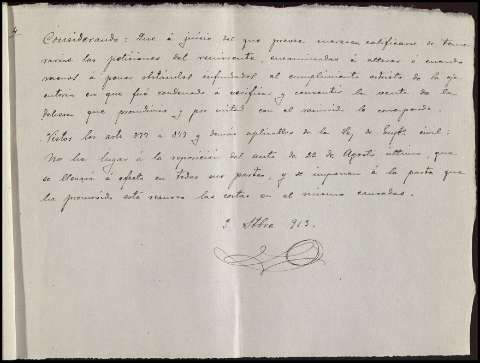 Considerando: Que á juicio del que provee merecen calificarse de teme
rarias las peticiones del recurrente, encaminadas á alterar ó cuando
menos á poner obstáculos infundados al cumplimiento estricto de la eje
cutoria en que fué condenado á verificar y consentir la venta de la
dehesa que proindiviso y por mitad con el recurrido le corresponde.
Vistos los arts 377 á 8 y demás aplicables de la Ley de Enjto civil:
No ha lugar á la reposición del auto de 22 de Agosto último, que
se llevará á efecto en todas sus partes, y se imponen á la parte que
ha promovido este recurso las costas en el mismo causadas.
2 Stbre 913.